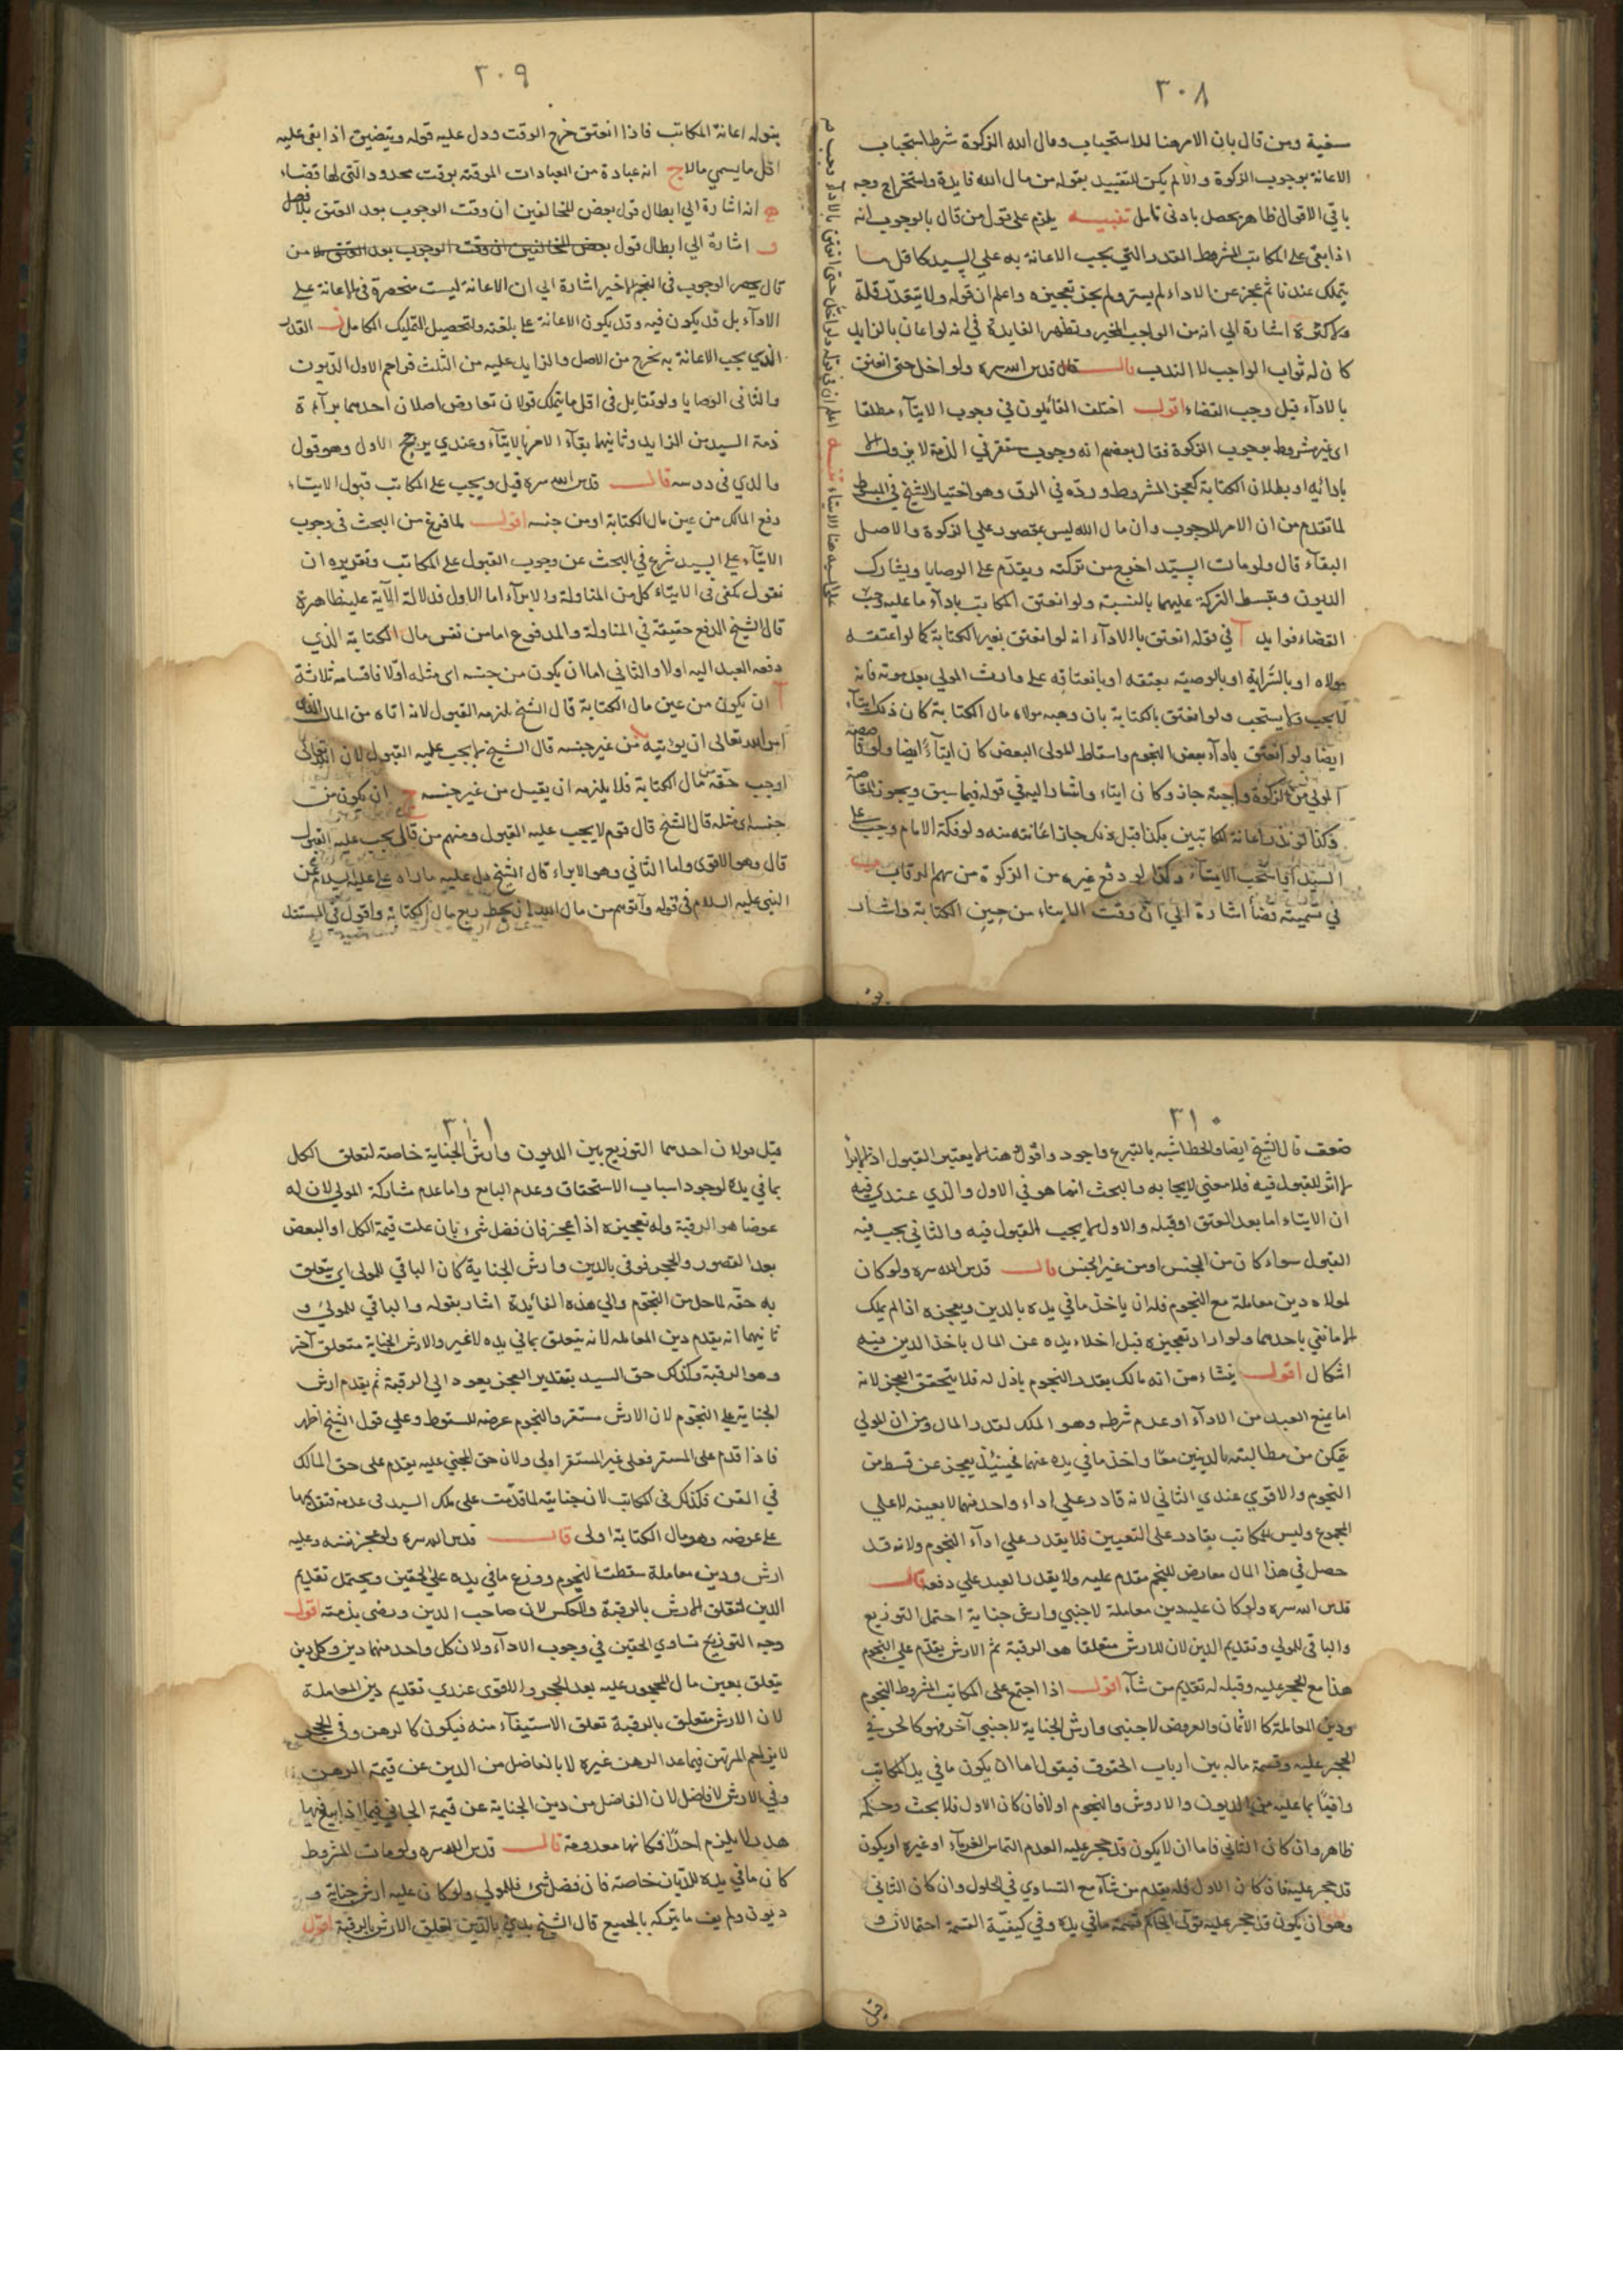 ٣٠٨
سفية ومن قال بان الامر هنا للاستحباب ومال الله الزكوة شرط استحباب
الاعانة بوجوب الزكوة والا لم يكن للتقييد بقوله من مال الله فايدة واستخراج وجه
باقي الاقوال ظاهر يحصل بادنى تامل تنبيه يلزم على قول من قال بالوجوب انه
اذا بقى على المكاتب المشروط القدر الذي يجب الاعانة به على السيد كاقل ما
يتملك عندنا ثم عجز عن الاداء لم يسترق ولم يجز تعجيزه واعلم ان قوله ولا يتقدر قلة
ولا كثرة اشارة الى انه من الواجب المخير وتظهر الفايدة في انه لو اعان بالزايد
كان له ثواب الواجب لا الندب قال قدس الله سره ولو اخل حتى انعتق
بالاداء قيل وجب القضاء اقول اختلف القائلون في وجوب الايتاء مطلقا
اى غير مشروط بوجوب الزكوة فقال بعضهم انه وجوب مستقر في الذمة لا يزول الا
بادائه او بطلان الكتابة كعجز المشروط ورده في الرق وهو اختيار الشيخ في المبسوط
لما تقدم من ان الامر للوجوب وان مال الله ليس بمقصور على الزكوة والاصل
البقاء قال ولو مات السيد اخرج من تركته ويقدم على الوصايا ويشارك
الديون وتبسط التركة عليهما بالنسبة ولو انعتق المكاتب باداء ما عليه وجب
القضاء فوايد آ في قوله انعتق بالاداء انه لو انعتق بغير الكتابة كما لو اعتقه
مولاه او بالسراية او بالوصية بعتقه او بانعتاقه على وارث المولى بعد موته فانه
لا يجب ولا يستحب ولو انعتق بالكتابة بان وهبه مولاه مال الكتابة كان ذلك ايتاء
ايضا ولو انعتق باداء بعض النجوم واسقاط المولى البعض كان ايتاء ايضا ولو
المولى من الزكوة واجبة جاز وكان ايتاء واشار اليه في قوله فيما سبق ويجوز
وكذا لو نذر اعانة المكاتبين
السيد
في تسميته قضأ اشارة الى ان وقت الايتاء من حين الكتابة واشار
٣٠٩
بقوله اعانة المكاتب فاذا انعتق خرج الوقت ودل عليه قوله ويتضيق اذا بقى عليه
اقل ما يسمى مالا ج انه عبادة من العبادات الموقته بوقت محدود التي لها قضاء
انه اشارة الى ابطال قول بعض المخالفين ان وقت الوجوب بعد العتق بلا فصل
و اشارة الى ابطال قول بعض المخالفين ان وقت الوجوب بعد العتق بلا من
قال يحصر الوجوب في النجم الاخير اشارة الى ان الاعانة ليست منحصرة في الاعانة على
الاداء بل قد يكون فيه وقد يكون الاعانة على بلغته ولتحصيل التمليك الكامل القدر
الذي يجب الاعانة به يخرج من الاصل والزايد عليه من الثلث فزاحم الاول الديون
والثاني الوصايا ولو تقابل في اقل ما يتملك قولان تعارض اصلان احدهما براءة
ذمة السيد من الزايد وثانيهما بقاء الامر بالايتاء وعندي يرجح الاول وهو قول
والدي في دروسه قال قدس الله سره قيل ويجب على المكاتب قبول الايتاء
دفع المالك من عين مال الكتابة او من جنسه اقول لما فرغ من البحث في وجوب
الايتاء على السيد شرع في البحث عن وجوب القبول على المكاتب وتقريره ان
نقول يكفى في الايتاء كل من المناولة والابراء اما الاول فدلالة الآية عليه ظاهرة
قال الشيخ الدفع حقيقة في المناولة والمدفوع اما من نفس مال الكتابة الذي
دفعه العبد اليه اولا والثاني اما ان يكون من جنسه اى مثله اولا فاقسامه ثلاثة
آ ان يكون من عين مال الكتابة قال الشيخ يلزمه القبول لانه اتاه من المال الذي
امر الله تعالى ان يؤتيه من غير جنسه قال الشيخ لا يجب عليه القبول لان الله تعالى
اوجب حقه من مال الكتابة فلا يلزمه ان يقبل من غير جنسه ج ان يكون من
جنسه اى مثله قال الشيخ قال قوم لا يجب عليه القبول ومنهم من قال يجب عليه القبول
قال وهو الاقوى واما الثاني وهو الابراء قال الشيخ دل عليه ما رواه على عليه السلام عن
النبي عليه السلام في قوله وآتوهم من مال الله ان يحط ربع مال الكتابة واقول في المستند
٣١٠
ضعف قال الشيخ ايضا والحط اشبه بالتبرع واجود واقول هنا لا يعتبر القبول اذ
لا اثر للقبول فيه فلا معنى لايجابه والبحث انما هو في الاول والذي عندي فيه
ان الايتاء اما بعد العتق او قبله والاول لا يجب القبول فيه والثاني يجب فيه
القبول سواء كان من الجنس او من غير الجنس قال قدس الله سره ولو كان
لمولاه دين معاملة مع النجوم فله ان ياخذ ما في يده بالدين ويعجزه اذا لم يملك
الا ما يفي باحدهما ولو اراد تعجيزه قبل اخلاء يده عن المال باخذ الدين ففيه
اشكال اقول ينشاء من انه مالك بقدر النجوم باذل له فلا يتحقق العجز لانه
اما يمنع العبد من الاداء او عدم شرطه وهو الملك لقدر المال ومن ان للمولى
يمكن من مطالبته بالدينين معا واخذ ما في يده عنهما فحينئذ يعجز عن قسط من
النجوم والاقوى عندي الثاني لانه قادر على اداء واحد منهما لا بعينه لا على
المجموع وليس للمكاتب بقادر على التعيين فلا يقدر على اداء النجوم ولانه قد
حصل في هذا المال معارض للنجم مقدم عليه ولا يقدر العبد على دفعه قال
قدس الله سره ولو كان عليه دين معاملة لاجنبي وارش جناية احتمل التوزيع
والباقي للمولى وتقديم الدين لان للارش متعلقا هو الرقبة ثم الارش يقدم على النجوم
هذا مع الحجر عليه وقبله له تقديم من شاء اقول اذا اجتمع على المكاتب المشروط النجوم
ودين المعاملة كالاثمان والعروض لاجنبي وارش الجناية لاجنبي آخر فهو كالحر في
الحجر عليه وقسمة ماله بين ارباب الحقوق فيقول اما ان يكون ما في يد المكاتب
وافيا بما عليه من الديون والاروش والنجوم اولا فان كان الاول فلا بحث وحكمه
ظاهر وان كان الثاني فاما ان لا يكون قد حجر عليه لعدم التماس الغرماء او غيره او يكون
قد حجر عليه فان كان الاول فله يقدم من شاء مع التساوى في الحلول وان كان الثاني
وهو ان يكون قد حجر عليه تولى الحاكم قسمة ما في يده وفي كيفية القسمة احتمالات
٣١١
قيل قولان احدهما التوزيع بين الديون وارش الجناية خاصة لتعلق الكل
بما في يده لوجود اسباب الاستحقاق وعدم المانع واما عدم مشاركة المولى لان له
عوضا هو الرقبة وله تعجيزه اذا عجز فان فضل شئ بان علت قيمة الكل او البعض
بعد القصور والحجر فوفى بالدين وارش الجناية كان الباقي للمولى اى يتعلق
به حقه لما حل من النجوم والى هذه الفائدة اشار بقوله والباقي للمولى و
ثانيهما انه يقدم دين المعاملة لانه يتعلق بما في يده لا غير والارش الجناية متعلق آخر
وهو الرقبة وكذلك حق السيد بتقدير العجز يعود الى الرقبة ثم يقدم ارش
الجناية على النجوم لان الارش مستقر والنجوم عرضة للسقوط وعلى قول الشيخ اظهر
فاذا قدم على المستقر فعلى غير المستقر اولى ولان حق المجني عليه يقدم على حق المالك
في القن فكذلك في المكاتب لان جنايته لما قدمت على ملك السيد في عدمه فتقديمها
على عوضه وهو مال الكتابة اولى قال قدس الله سره ولو عجز نفسه وعليه
ارش ودين معاملة سقطت النجوم ووزع ما في يده على الحقين ويحتمل تقديم
الدين لتعلق الارش بالرقبة والعكس لان صاحب الدين ورضى بذمته اقول
وجه التوزيع تساوى الحقين في وجوب الاداء ولان كل واحد منهما دين وكل دين
يتعلق بعين مال المحجور عليه بعد الحجر والاقوى عندي تقديم دين المعاملة
لان الارش متعلق بالرقبة تعلق الاستيفاء منه فيكون كالرهن وفي الحجر
لا يزاحم المرتهن فيما عدا الرهن غيره لا بالفاضل من الدين عن قيمة الرهن
وفي الارش لا فاضل لان الفاضل من دين الجناية عن قيمة الجاني فيما اذا بيع فيها
هدر لا يلزم احدا فكانها معدومة قال قدس الله سره ولو مات المشروط
كان ما في يده للديان خاصة فان فضل شئ فللمولى ولو كان عليه ارش جناية و
ديون ولم يف ما تركه بالجميع قال الشيخ يبدئ بالدين لتعلق الارش بالرقبة اقول